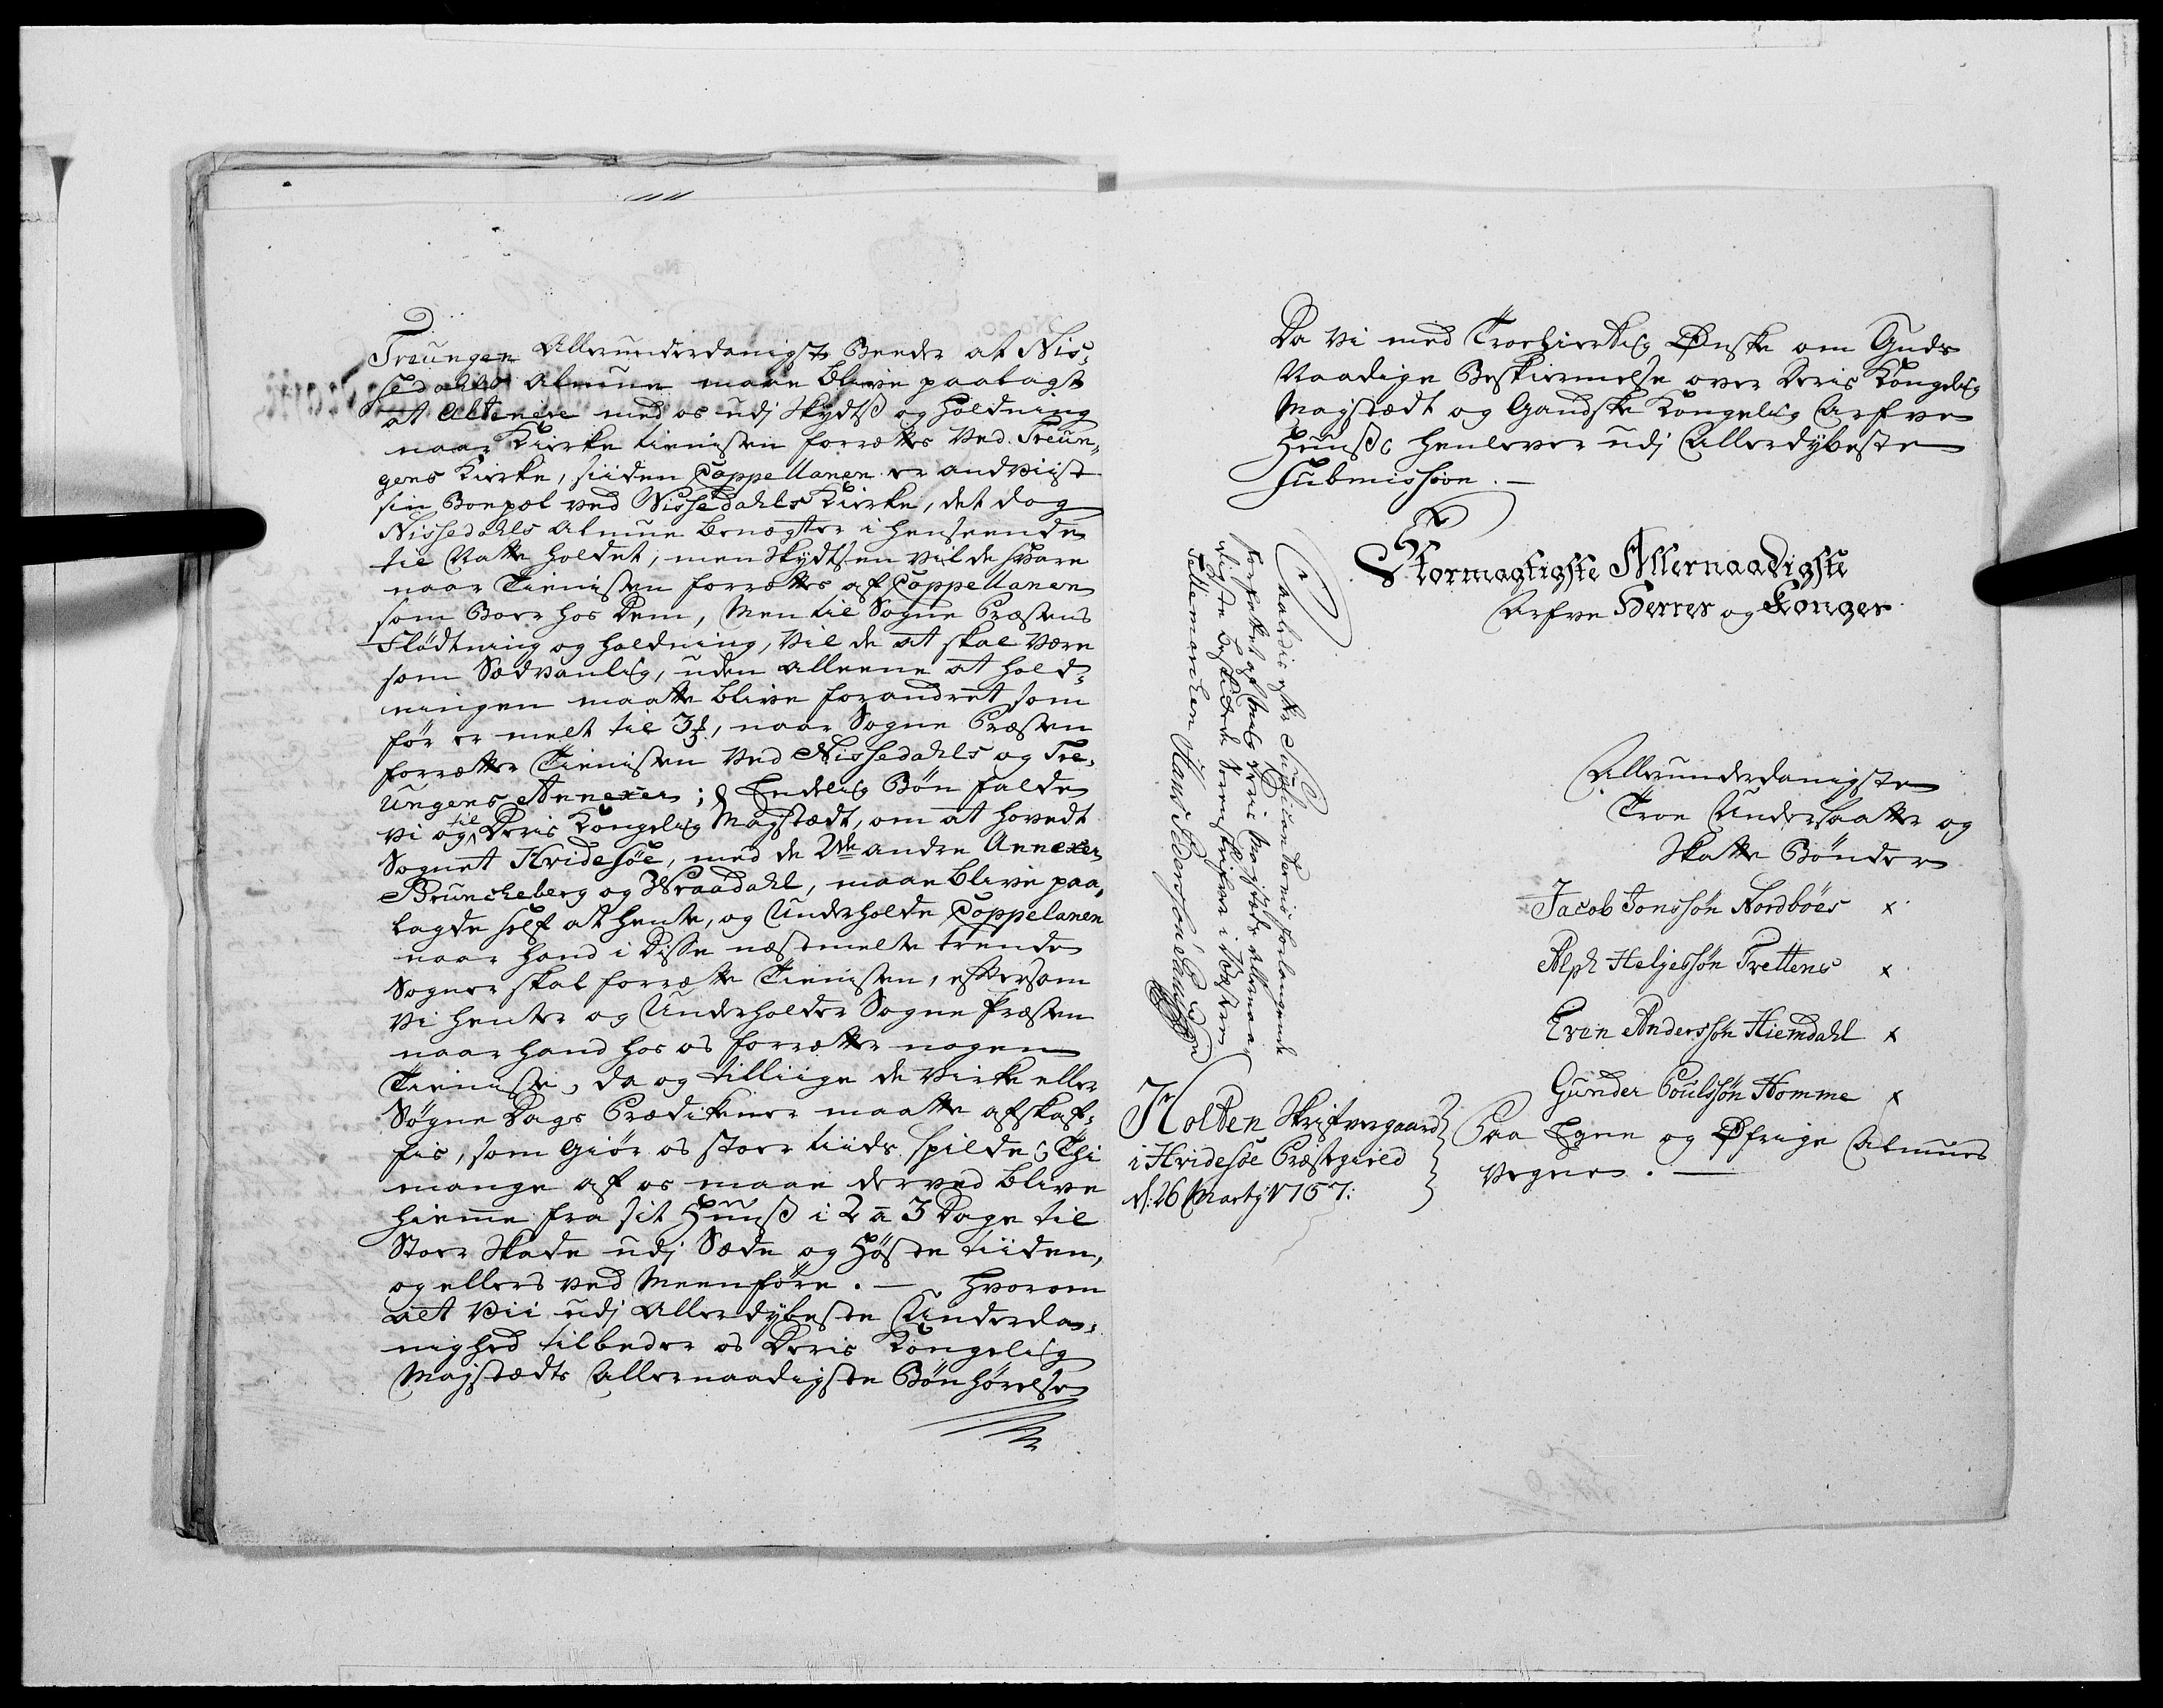 Treungen Allerunderdanigst Beeder at Nis,
sedahls Almue maae blive paalagt
at Altenere med os udj Skydtz og Holdning
naar Kirke tienisten forrettes Ved Treun,
gens Kirke, siiden Cappellanen er andviist
sin Boepæl ved Nissedahls Kirke, det dog
Nissedahls Almue benægter i henseende
til Natte holdet, men Skydtsen vil de svare
naar Tienisten forrettes af Cappellanen
som Boer hos dem, Men til Sogne Præstens
Flødtning og holdning, vil de at skal være
som Sædvanlig, uden alleene at hold,
ningen maatte blive forandret som
før er melt til 3 , naar Sogne Præsten
forretter Tienisten Ved Nissedahls og Tre,
ungens Annexer; Endelig Bøn falde
Vi og til Deris Kongelig Mayestædt, om at hovedt
Sognet Hvidesøe, med de 2de andre Annexer
Bruncheberg og Wraadahl, maae blive paa,
lagde self at hente, og Underholde Cappelanen
naar hand i Disse næstmelte trende
Sogner skal forrette Tienisten, eftersom
Vi henter og Underholder Sogne Præsten
naar hand hos os forretter nogen
Tieniste, da og tilliige de Virke eller
Søgne Dags Prædikener maatte afskaf,
fis, som Giør os stoer tiids spilde; Thi
mange af os maae derved blive
hieme fra sit Huuß i 2 a 3 Dage til
Stoer Skade udj Sæde og Høste tiiden,
og ellers ved Meenføre. — Hvorom
alt Vii udj Allerdybeste Underda,
nighed tilbeder os Deris Kongelig
Mayestædts Allernaadigste Bønhørelse
Da Vi med Troehiertelig Ønske om Guds
Naadige Beskiermelse over Deris Kongelig
Mayestædt og Gandske Kongelig Arfve
Huuß henlever udj Allerdybeste
Submission. —
Stormagtigste Allernaadigste
Arfve Herres og Konges
Allerunderdanigste
Troe Undersaatter og
Skatte Bønder
Jacob Jonssøn Nordbøes x
Alph Heljessøn Trettens x
Even Anderssøn Hiemdahl x
Gunder Poulssøn Homme x
Paa Egne og Øfrige Almues
Vegne. —
Saaledis efter Suplicanternis forlangende
forfattet af Kongelig Mayestæts allernaa,
digste bestilte Sorenskrifver i Vesten
Tellemarken Hans Pedersøn
Holten Skrifvergaard
i Hvidesøe Præstegield
d: 26 Marty 1757: